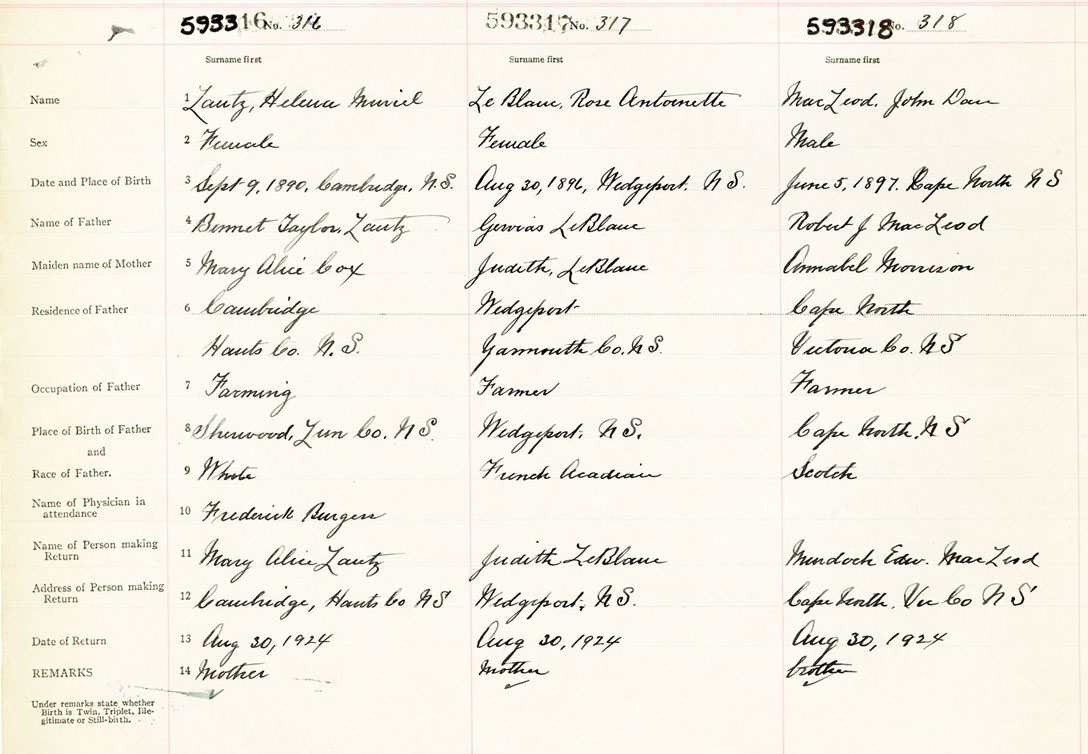 593316 No. 316 593317 No. 317 593318 No. 318
Surname first Surname first Surname first
Name 1 Zautz, Helena Muriel Le Blanc, Rose Antoinette MacLeod, John Dan
Sex 2 Female Female Male
Date and Place of Birth 3 Sept 9, 1890, Cambridge, N.S. Aug 30, 1896, Wedgeport. N S. June 5, 1897. Cape North N S
Name of Father 4 Bennet Taylor, Zautz Gervias LeBlanc Robert J MacLeod
Maiden name of Mother 5 Mary Alice Cox Judith, LeBlanc Annabel Morrison
Residence of Father 6 Cambridge Wedgeport Cape North
Hants Co. N. S. Yarmouth Co. N S. Victoria Co. N S
Occupation of Father 7 Farming Farmer Farmer
Place of Birth of Father 8 Sherwood, Lun Co. N S. Wedgeport. N S. Cape North. N S
and
Race of Father. 9 White French Acadian Scotch
Name of Physician in
attendance 10 Frederick Burgess
Name of Person making
Return 11 Mary Alice Zautz Judith LeBlanc Murdock Edw. MacLeod
Address of Person making
Return 12 Cambridge, Hants Co N S Wedgeport, N S. Cape North. Vic Co N S
Date of Return 13 Aug 30, 1924 Aug 30, 1924 Aug 30, 1924
REMARKS 14 Mother Mother brother
Under remarks state whether
Birth is Twin, Triplet, Ille-
gitimate or Still-birth.